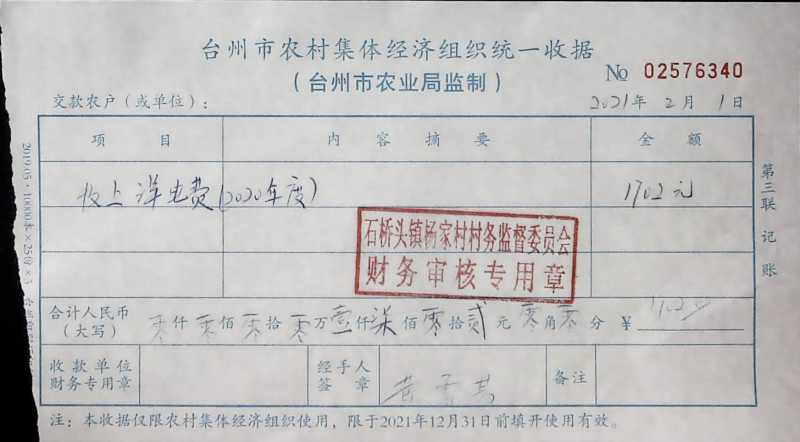 台州市农村集体经济组织统一收据
（台州市农业局监制）
No 02576340
交款农户（或单位）：
2021年 2月 1日
项 目 内 容 摘 要 金 额
收上洋电费(2020年度) 1702元
石桥头镇杨家村村务监督委员会
财务审核专用章
合计人民币（大写） 零仟零佰零拾零万壹仟柒佰零拾贰元零角零分 ¥
收款单位财务专用章 经手人签章 备注
注：本收据仅限农村集体经济组织使用，限于2021年12月31日前填开使用有效。
第三联 记账
2019.05·10000本×25份×3